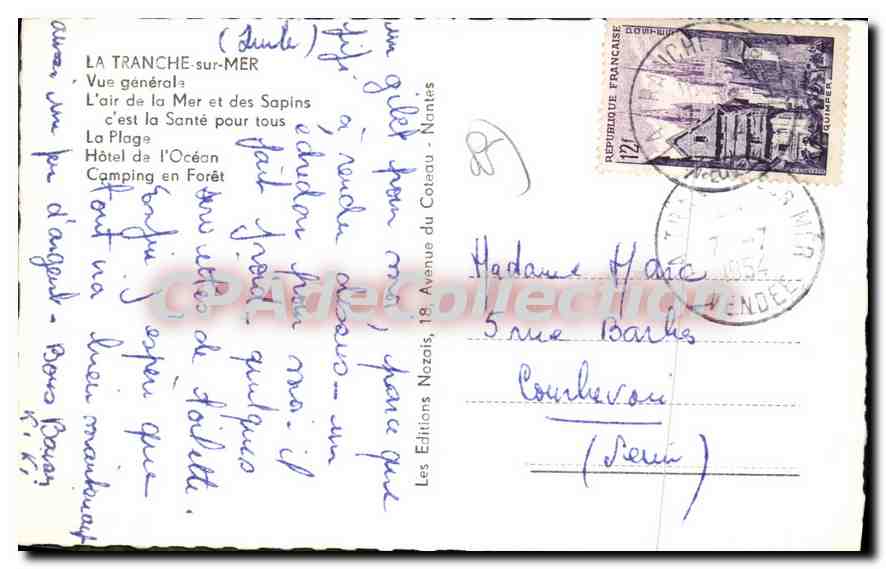 LA TRANCHE-sur-MER
Vue générale
L'air de la Mer et des Sapins
c'est la Santé pour tous
La Plage
Hôtel de l'Océan
Camping en Forêt
(Suite)
un gilet pour moi, parce que
fifi a rendu dessus - un
édredon pour moi - il
fait froid - quelques
serviettes de toilette.
Enfin j'espère que
tout va bien maintenant
aussi un peu d'argent - Bons Baisers
Kiki
Les Editions Nozais, 18, Avenue du Coteau - Nantes
RÉPUBLIQUE FRANÇAISE
POSTES
12f
QUIMPER
LA TRANCHE SUR MER
7 - 7
1954
VENDÉE
Madame Marc
5 rue Barbes
Courbevoie
(Seine)
CPAdeCollection